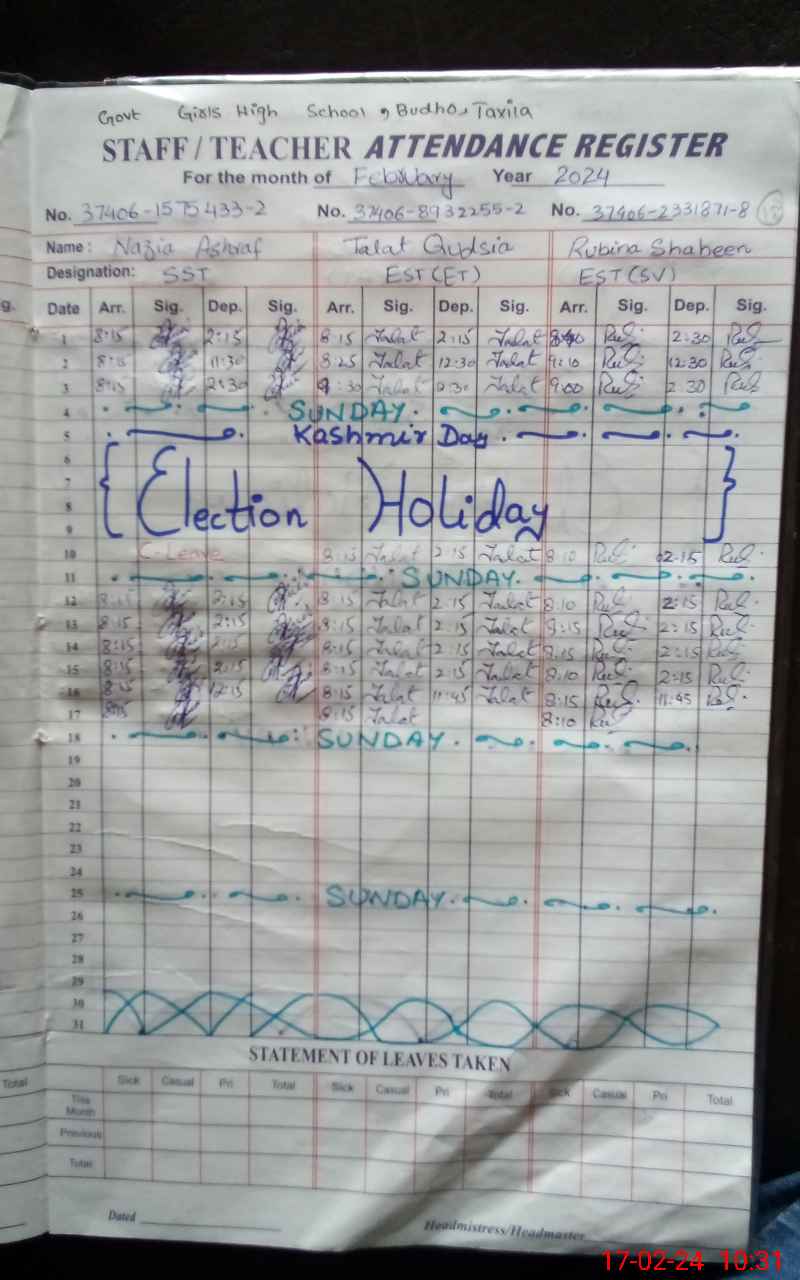 Govt Girls High School, Budho, Taxila
STAFF / TEACHER ATTENDANCE REGISTER
For the month of February Year 2024
No. 37406-1575433-2 No. 37406-8932255-2 No. 37406-2331871-8
Name: Nazia Ashraf Talat Qudsia Rubina Shaheen
Designation: SST EST (ET) EST (SV)
Date Arr. Sig. Dep. Sig. Arr. Sig. Dep. Sig. Arr. Sig. Dep. Sig.
1 8:15 2:15 8:15 Talat 2:15 Talat 2:30
2 8:15 11:30 8:25 Talat 12:30 Talat 9:10 12:30
3 8:15 2:30 9:30 Talat 2:30 Talat 9:00 2:30
4 SUNDAY.
5 Kashmir Day.
6
7
{ Election Holiday }
8
9
10 C-Leave 8:15 Talat 2:15 Talat 8:10 02:15
11 SUNDAY.
12 8:15 2:15 8:15 Talat 2:15 Talat 8:10 2:15
13 8:15 2:15 8:15 Talat 2:15 Talat 8:15 2:15
14 8:15 2:15 8:15 Talat 2:15 Talat 8:15 2:15
15 8:15 2:15 8:15 Talat 2:15 Talat 8:10 2:15
16 8:15 12:15 8:15 Talat 11:45 Talat 8:15 11:45
17 8:15 8:15 Talat 8:10
18 SUNDAY.
19
20
21
22
23
24
25 SUNDAY.
26
27
28
29
30
31
STATEMENT OF LEAVES TAKEN
Sick Casual Pri Total Sick Casual Pri Total Sick Casual Pri Total
This Month
Previous
Total
Total
Dated
Headmistress/Headmaster
17-02-24 10:31